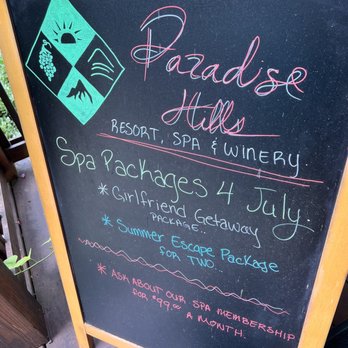 Paradise
Hills
RESORT, SPA & WINERY
Spa Packages 4 July.
* Girlfriend Getaway
PACKAGE..
* Summer Escape Package
FOR TWO..
* ASK ABOUT OUR SPA MEMBERSHIP
FOR $99.00
A MONTH.